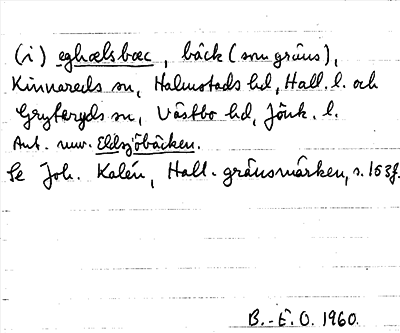 (i) eghælsbæc, bäck (som gräns),
Kinnareds sn, Halmstads hd, Hall. l. och
Gryteryds sn, Västbo hd, Jönk. l.
Ant. nuv. Eldsjöbäcken.
Se Joh. Kalén, Hall. gränsmärken, s. 163f.
B.-E.O. 1960.